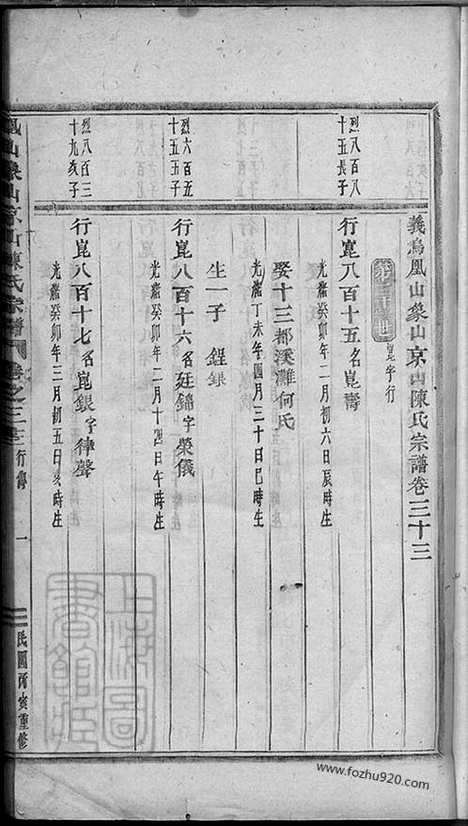 義烏鳳山象山京山陳氏宗譜卷三十三
崑字行
烈八百八
十五長子
行崑八百十五名崑壽
光緒癸卯年二月初六日辰時生
娶十三都溪灘何氏
光緒丁未年四月三十日巳時生
生一子 鋥錄
烈六百五
十五五子
行崑八百十六名廷錦字榮儀
光緒癸卯年二月十四日午時生
烈八百三
十九亥子
行崑八百十七名崑銀字律聲
光緒癸卯年三月初五日亥時生
鳳山象山京山陳氏宗譜
卷之三十三
行傳
一
民國丙寅重修
上海圖書館藏
www.fozhu920.com